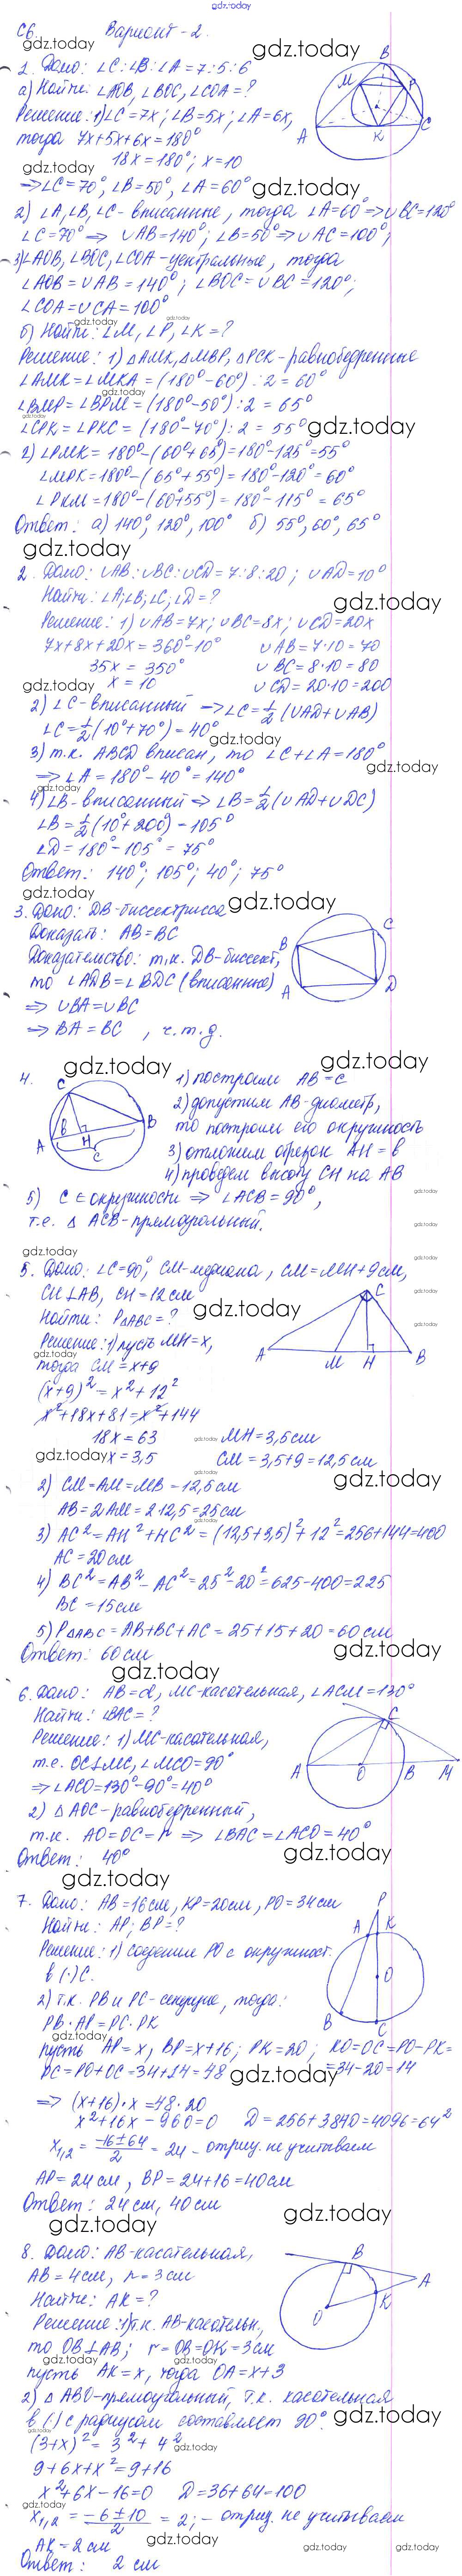 gdz.today
С6. Вариант-2.
gdz.today
1. Дано: ∠C:∠B:∠A = 7:5:6
а) Найти: ∠AOB, ∠BOC, ∠COA = ?
Решение: 1) ∠C = 7x; ∠B = 5x; ∠A = 6x,
тогда 7x+5x+6x = 180°
18x = 180°; x = 10
gdz.today
⇒ ∠C = 70°, ∠B = 50°, ∠A = 60°
2) ∠A, ∠B, ∠C - вписанные, тогда ∠A = 60° ⇒ ∪BC = 120°
∠C = 70° ⇒ ∪AB = 140°; ∠B = 50° ⇒ ∪AC = 100°;
3) ∠AOB, ∠BOC, ∠COA - центральные, тогда
∠AOB = ∪AB = 140°; ∠BOC = ∪BC = 120°;
∠COA = ∪CA = 100°
б) Найти: ∠M, ∠P, ∠K = ?
Решение: 1) △AMK, △MBP, △PCK - равнобедренные
∠AMK = ∠MKA = (180° - 60°) : 2 = 60°
∠BMP = ∠BPM = (180° - 50°) : 2 = 65°
∠CPK = ∠PKC = (180° - 70°) : 2 = 55°
2) ∠PMK = 180° - (60° + 65°) = 180° - 125° = 55°
∠MPK = 180° - (65° + 55°) = 180° - 120° = 60°
∠PKM = 180° - (60° + 55°) = 180° - 115° = 65°
Ответ: а) 140°, 120°, 100° б) 55°, 60°, 65°
gdz.today
2. Дано: ∪AB:∪BC:∪CD = 7:8:20; ∪AD = 10°
Найти: ∠A; ∠B; ∠C; ∠D = ?
Решение: 1) ∪AB = 7x; ∪BC = 8x; ∪CD = 20x
7x+8x+20x = 360° - 10° ∪AB = 7·10 = 70
35x = 350° ∪BC = 8·10 = 80
x = 10 ∪CD = 20·10 = 200
2) ∠C - вписанный ⇒ ∠C = 1/2 (∪AD + ∪AB)
∠C = 1/2 (10° + 70°) = 40°
3) т.к. ABCD вписан, то ∠C + ∠A = 180°
⇒ ∠A = 180° - 40° = 140°
4) ∠B - вписанный ⇒ ∠B = 1/2 (∪AD + ∪DC)
∠B = 1/2 (10° + 200°) = 105°
∠D = 180° - 105° = 75°
Ответ: 140°; 105°; 40°; 75°
gdz.today
3. Дано: DB - биссектрисса
Доказать: AB = BC
Доказательство: т.к. DB - биссект,
то ∠ADB = ∠BDC (вписанные)
⇒ ∪BA = ∪BC
⇒ BA = BC, ч.т.д.
gdz.today
4. 1) построим AB = c
2) допустим AB - диаметр,
то построим его окружность
3) отложим отрезок AH = b
4) проведем высоту CH на AB
5) C ∈ окружности ⇒ ∠ACB = 90°,
т.е. △ ACB - прямоугольный.
gdz.today
5. Дано: ∠C = 90°, CM - медиана, CM = MH + 9 см,
CH ⊥ AB, CH = 12 см
Найти: P△ABC = ?
Решение: 1) пусть MH = x,
тогда CM = x+9
(x+9)² = x² + 12²
x² + 18x + 81 = x² + 144
18x = 63 MH = 3,5 см
x = 3,5 CM = 3,5 + 9 = 12,5 см
2) CM = AM = MB = 12,5 см
AB = 2AM = 2·12,5 = 25 см
3) AC² = AH² + HC² = (12,5 + 3,5)² + 12² = 256 + 144 = 400
AC = 20 см
4) BC² = AB² - AC² = 25² - 20² = 625 - 400 = 225
BC = 15 см
5) P△ABC = AB + BC + AC = 25 + 15 + 20 = 60 см
Ответ: 60 см
gdz.today
6. Дано: AB = d, MC - касательная, ∠ACM = 130°
Найти: ∠BAC = ?
Решение: 1) MC - касательная,
т.е. OC ⊥ MC, ∠MCO = 90°
⇒ ∠ACO = 130° - 90° = 40°
2) △AOC - равнобедренный,
т.к. AO = OC = r ⇒ ∠BAC = ∠ACO = 40°
Ответ: 40°
gdz.today
7. Дано: AB = 16 см, KP = 20 см, PO = 34 см
Найти: AP; BP = ?
Решение: 1) Соединим PO с окружност.
в (·) C.
2) т.к. PB и PC - секущие, тогда:
PB · AP = PC · PK
пусть AP = x, BP = x+16; PK = 20; KO = OC = PO - PK =
PC = PO + OC = 34 + 14 = 48 = 34 - 20 = 14
⇒ (x+16)·x = 48·20
x² + 16x - 960 = 0 D = 256 + 3840 = 4096 = 64²
x₁,₂ = (-16 ± 64)/2 = 24 - отриц. не учитываем
AP = 24 см, BP = 24 + 16 = 40 см
Ответ: 24 см, 40 см
gdz.today
8. Дано: AB - касательная,
AB = 4 см, r = 3 см
Найти: AK = ?
Решение: 1) т.к. AB - касательн.,
то OB ⊥ AB; r = OB = OK = 3 см
пусть AK = x, тогда OA = x+3
2) △ ABO - прямоугольный, т.к. касательная
в (·) с радиусом составляет 90°.
(3+x)² = 3² + 4²
9 + 6x + x² = 9 + 16
x² + 6x - 16 = 0 D = 36 + 64 = 100
x₁,₂ = (-6 ± 10)/2 = 2; - отриц. не учитываем
AK = 2 см
Ответ: 2 см